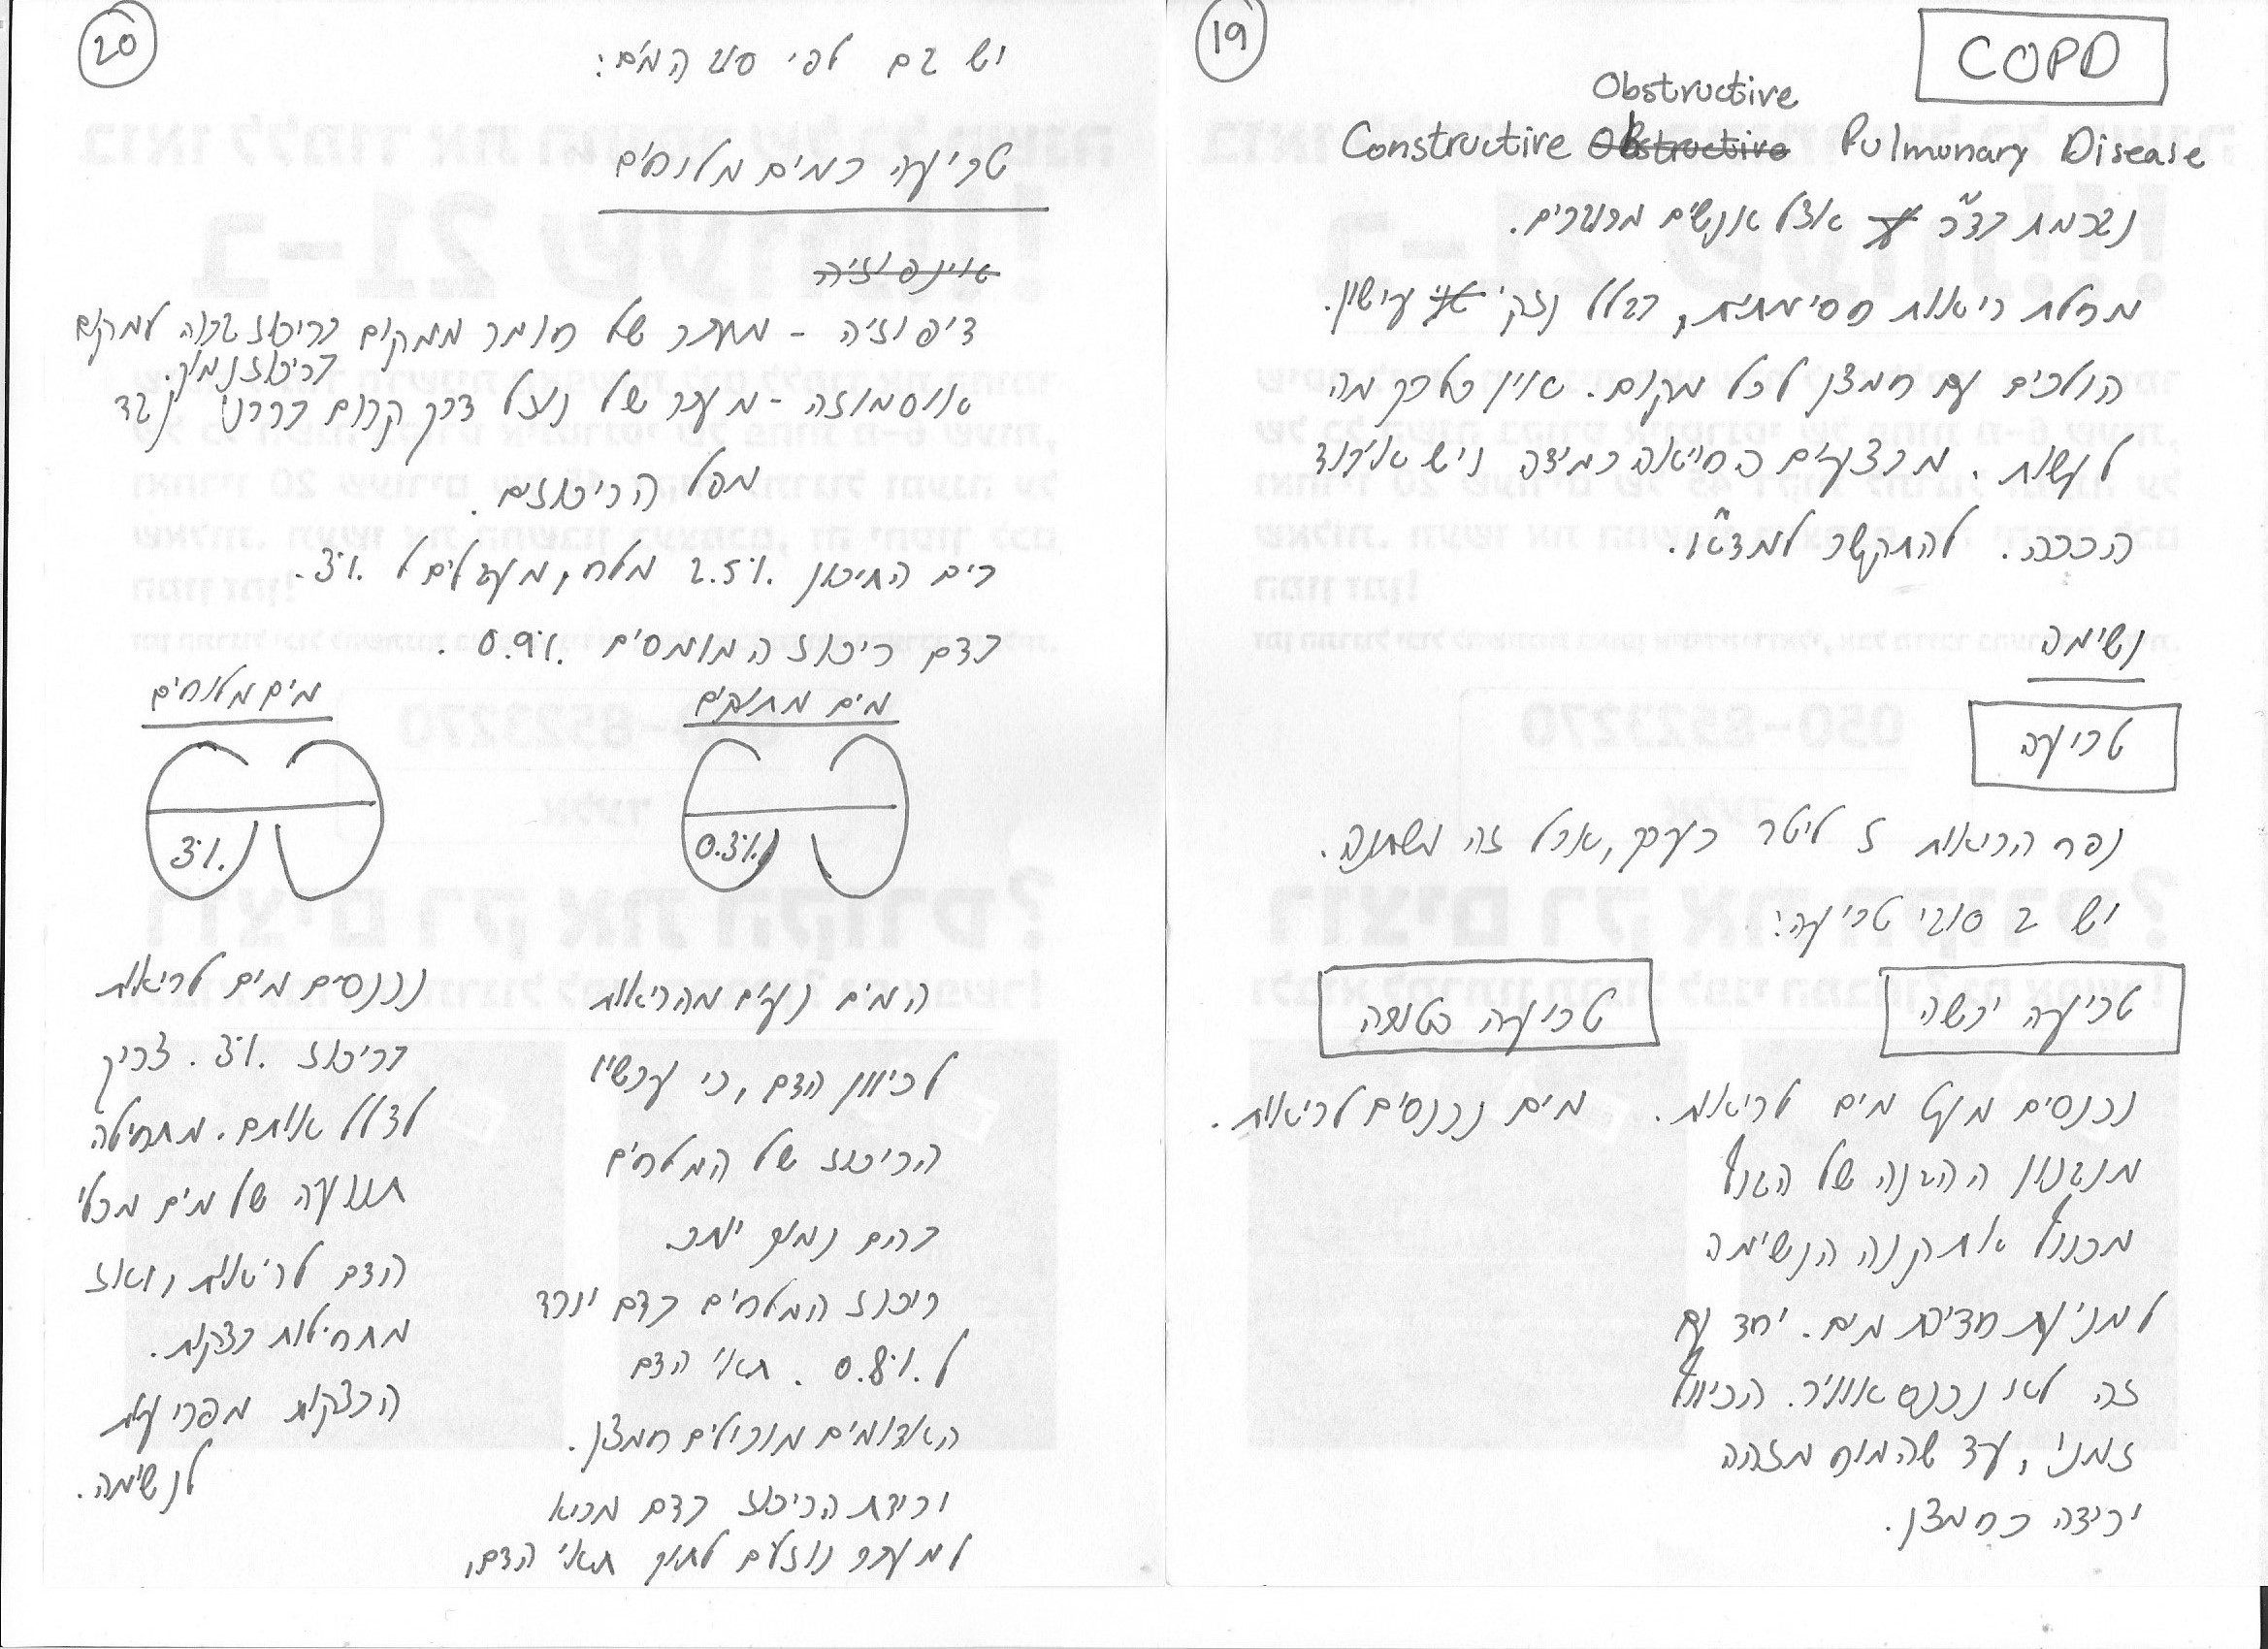 19
COPD
Obstructive
Constructive Obstructive Pulmonary Disease
נגרמת בד"כ אצל אנשים מבוגרים.
מחלת ריאות חסימתית, בגלל נזקי עישון.
הולכים עם חמצן לכל מקום. אין כל כך מה
לעשות. מבצעים החייאה במידה ויש איבוד
הכרה. להתקשר למד"א.
נשימה
טביעה
נפח הריאות 5 ליטר בערך, אבל זה משתנה.
יש 2 סוגי טביעה:
טביעה יבשה
נכנסים מעט מים לריאות.
מנגנון ההגנה של הגוף
מכווץ את קנה הנשימה
למניעת חדירת מים. יחד עם
זה לא נכנס אוויר. הכיווץ
זמני, עד שהמוח מזהה
ירידה בחמצן.
טביעה רטובה
מים נכנסים לריאות.
20
יש גם לפי סוג המים:
טביעה במים מלוחים
דיפוזיה - מעבר של חומר ממקום בריכוז גבוה למקום
בריכוז נמוך.
אוסמוזה - מעבר של נוזל דרך קרום בררני נגד
מפל הריכוזים.
בים התיכון 2.5% מלח, מעגלים ל 3%.
בדם ריכוז המומסים 0.9%.
מים מתוקים
0.3%
המים נעים מהריאות
לכיוון הדם, כי עכשיו
הריכוז של המלחים
בהם נמוך יותר.
ריכוז המלחים בדם יורד
ל 0.8%. תאי הדם
האדומים מובילים חמצן.
ירידת הריכוז בדם מביא
למעבר נוזלים לתוך תאי הדם,
מים מלוחים
3%
נכנסים מים לריאות
בריכוז 3%. צריך
לדלל אותם. מתחילה
תנועה של מים מכלי
הדם לריאות, ואז
מתחילות בצקות.
הבצקות מפריעות
לנשימה.